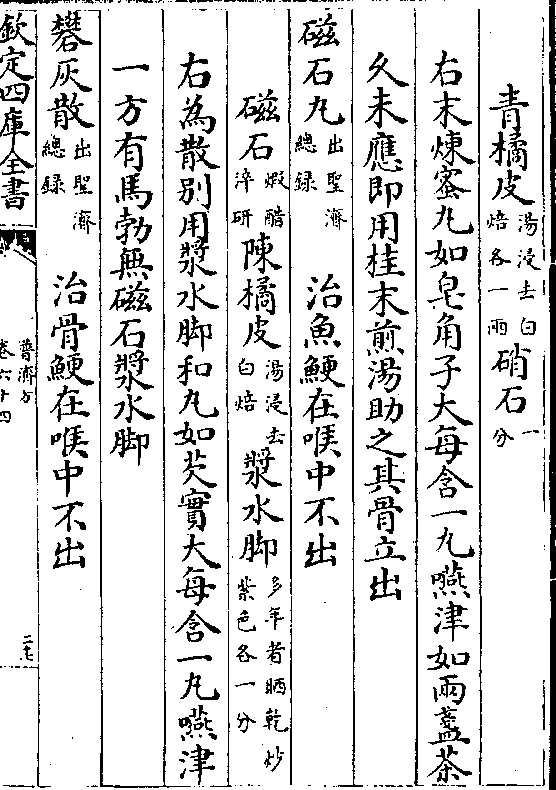 青橘皮湯浸去白焙各一兩硝石一分
右末煉蜜丸如皂角子大每含一丸嚥津如兩盞茶
久未應即用桂末煎湯助之其骨立出
磁石丸出聖濟總録 治魚鯁在喉中不出
磁石煅醋淬研陳橘皮湯浸去白焙漿水脚多年者晒乾炒紫色各一分
右為散别用漿水脚和丸如芡實大每含一丸嚥津
一方有馬勃無磁石漿水脚
礬灰散出聖濟總録 治骨鯁在喉中不出
欽定四庫全書
普濟方
卷六十四
二七